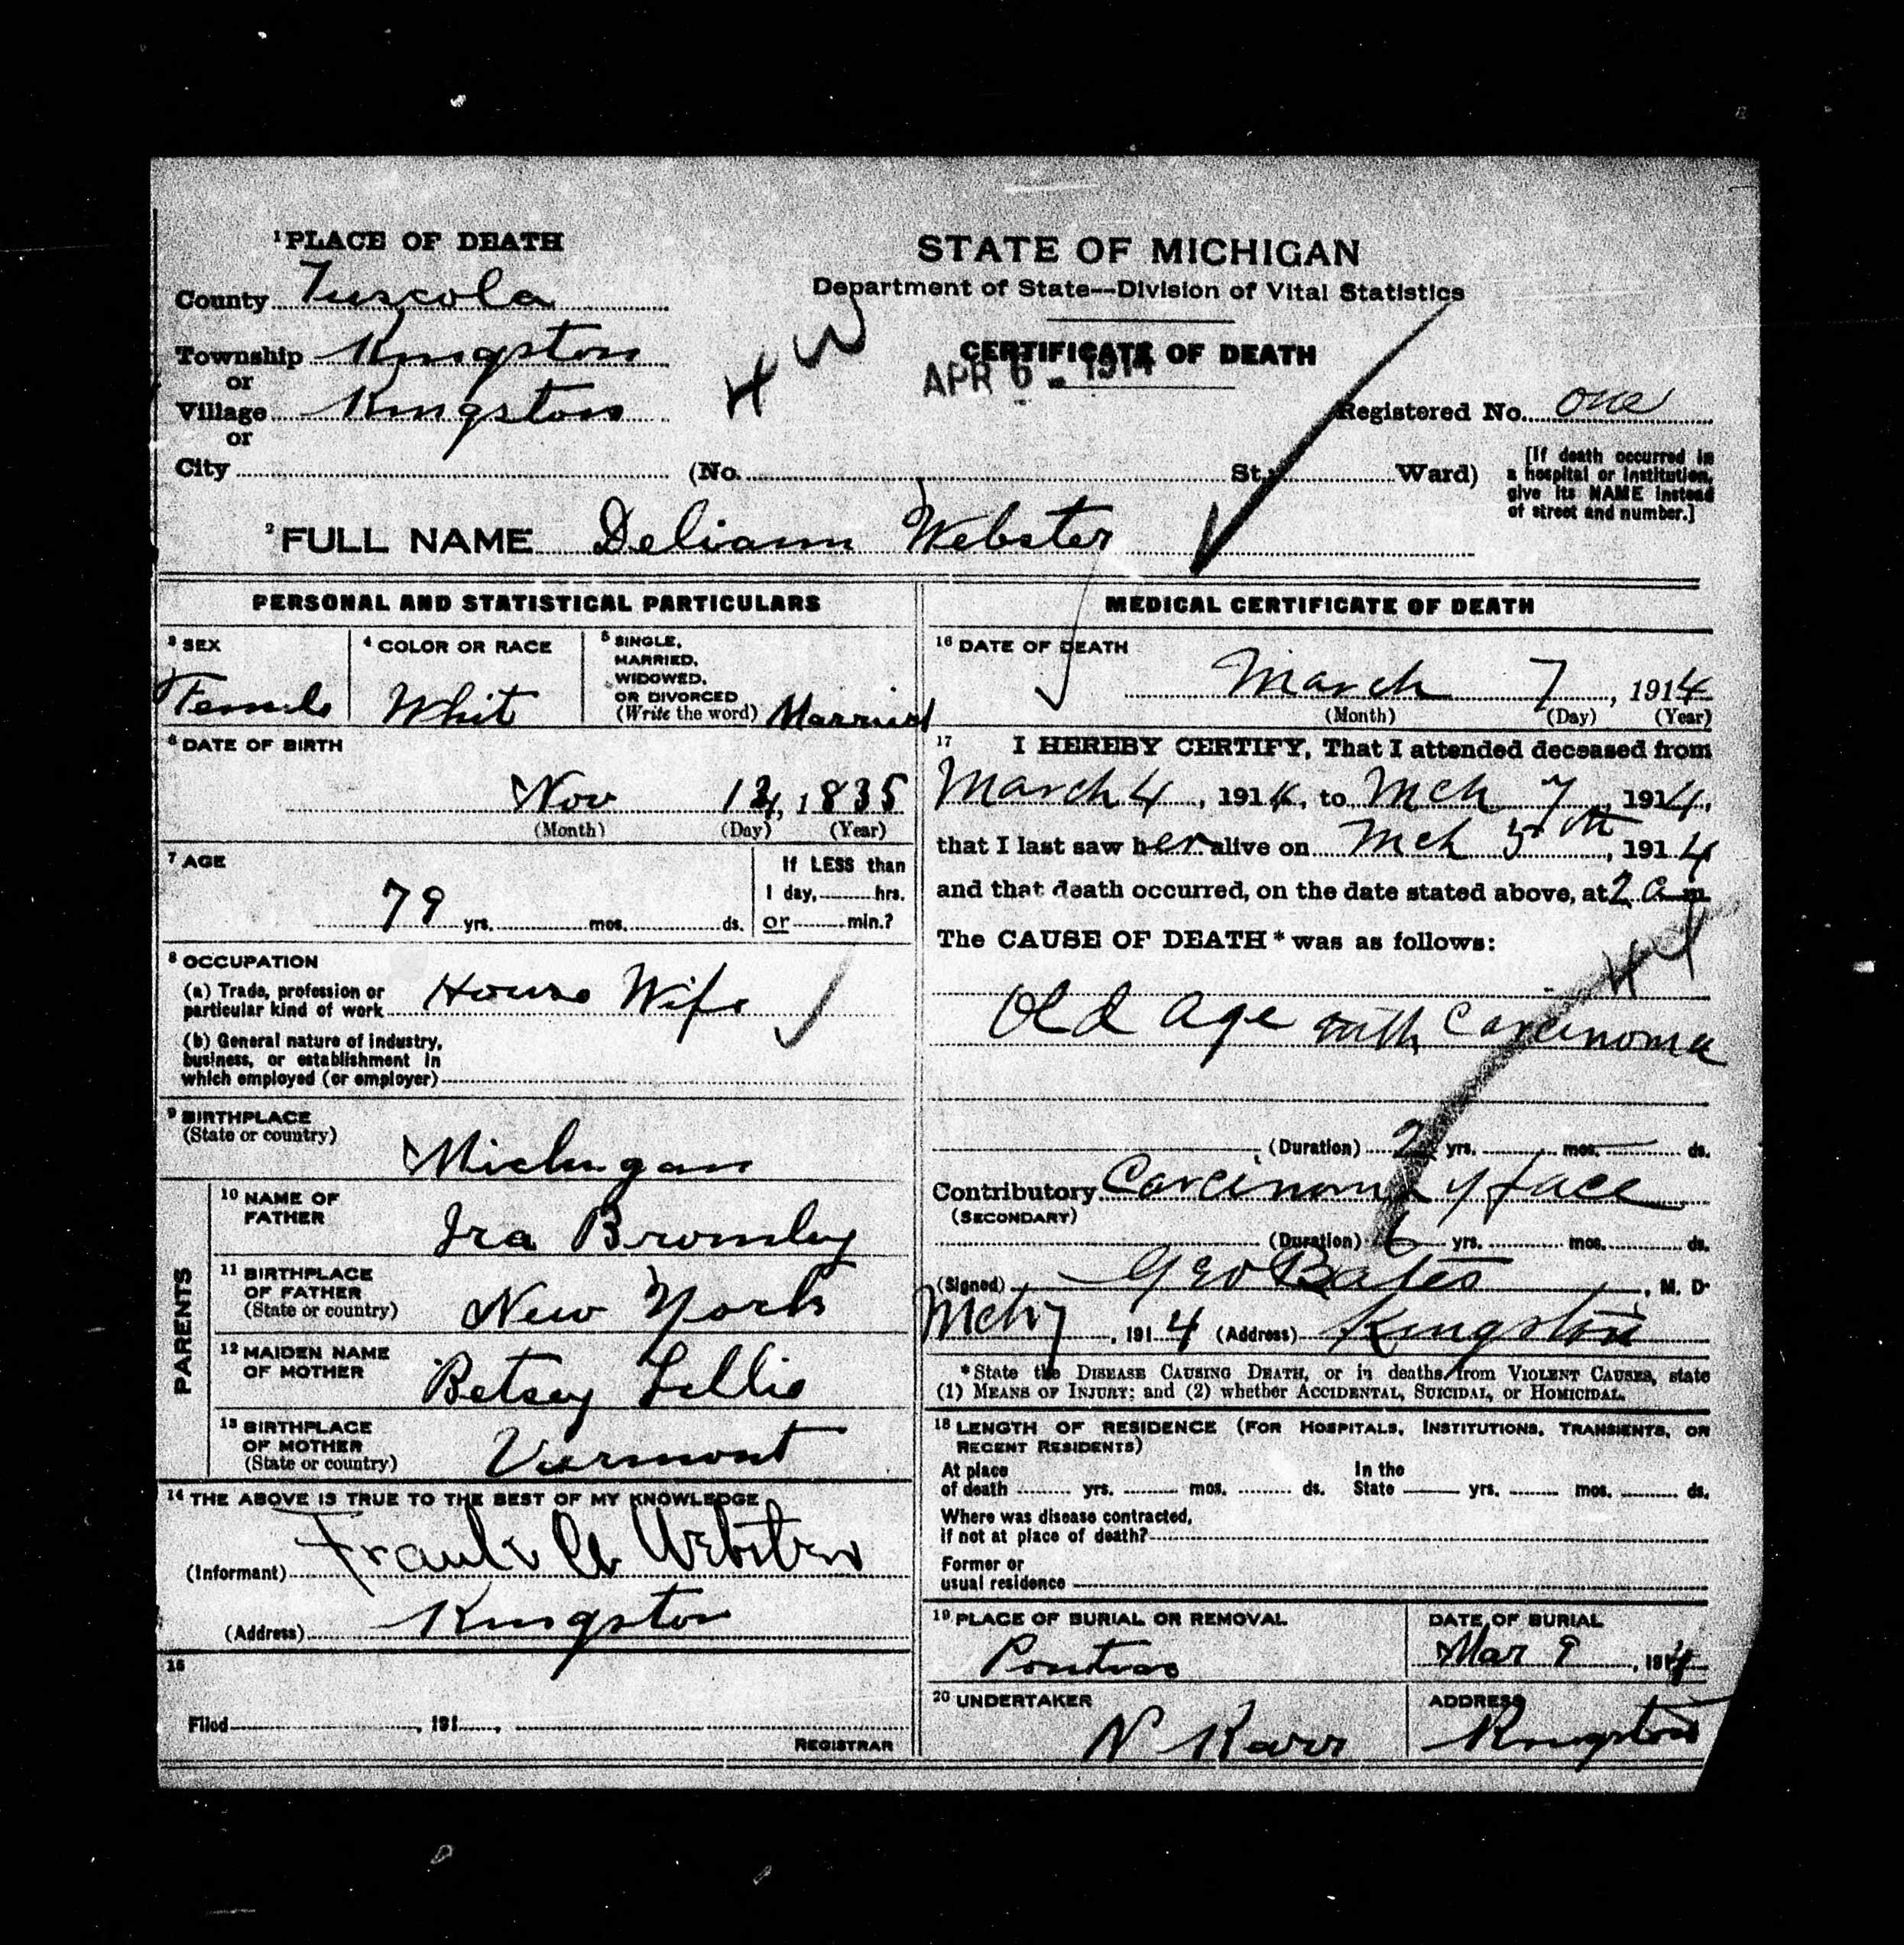 1 PLACE OF DEATH
County Tuscola
Township Kingston
or
Village Kingston
or
City (No. St.; Ward)
STATE OF MICHIGAN
Department of State—Division of Vital Statistics
CERTIFICATE OF DEATH
APR 6 - 1914
Registered No. one
[If death occurred in
a hospital or institution,
give its NAME instead
of street and number.]
2 FULL NAME Deliann Webster
PERSONAL AND STATISTICAL PARTICULARS
3 SEX
Female
4 COLOR OR RACE
Whit
5 SINGLE,
MARRIED,
WIDOWED,
OR DIVORCED
(Write the word) Married
6 DATE OF BIRTH
Nov 1835
(Month) (Day) (Year)
7 AGE
79 yrs. mos. ds.
If LESS than
1 day, hrs.
or min.?
8 OCCUPATION
(a) Trade, profession or
particular kind of work House Wife
(b) General nature of industry,
business, or establishment in
which employed (or employer)
9 BIRTHPLACE
(State or country)
Michigan
PARENTS
10 NAME OF
FATHER
Ira Bromley
11 BIRTHPLACE
OF FATHER
(State or country)
New York
12 MAIDEN NAME
OF MOTHER
Betsey Lillie
13 BIRTHPLACE
OF MOTHER
(State or country)
Vermont
14 THE ABOVE IS TRUE TO THE BEST OF MY KNOWLEDGE
(Informant) Frank Webster
(Address) Kingston
15
Filed , 191 ,
REGISTRAR
MEDICAL CERTIFICATE OF DEATH
16 DATE OF DEATH
March 7, 1914
(Month) (Day) (Year)
17 I HEREBY CERTIFY, That I attended deceased from
March 4, 1914, to Mch 7, 1914,
that I last saw her alive on Mch 5th, 1914
and that death occurred, on the date stated above, at 2 a m
The CAUSE OF DEATH* was as follows:
Old age with Carcinoma
(Duration) 2 yrs. mos. ds.
Contributory Carcinoma of face
(SECONDARY)
(Duration) 6 yrs. mos. ds.
(Signed) Geo Bates, M. D.
Mch 7, 1914 (Address) Kingston
*State the DISEASE CAUSING DEATH, or in deaths from VIOLENT CAUSES, state
(1) MEANS OF INJURY; and (2) whether ACCIDENTAL, SUICIDAL, or HOMICIDAL.
18 LENGTH OF RESIDENCE (FOR HOSPITALS, INSTITUTIONS, TRANSIENTS, OR
RECENT RESIDENTS)
At place In the
of death yrs. mos. ds. State yrs. mos. ds.
Where was disease contracted,
if not at place of death?
Former or
usual residence
19 PLACE OF BURIAL OR REMOVAL
Pontiac
DATE OF BURIAL
Mar 9, 1914
20 UNDERTAKER
N Karr
ADDRESS
Kingston